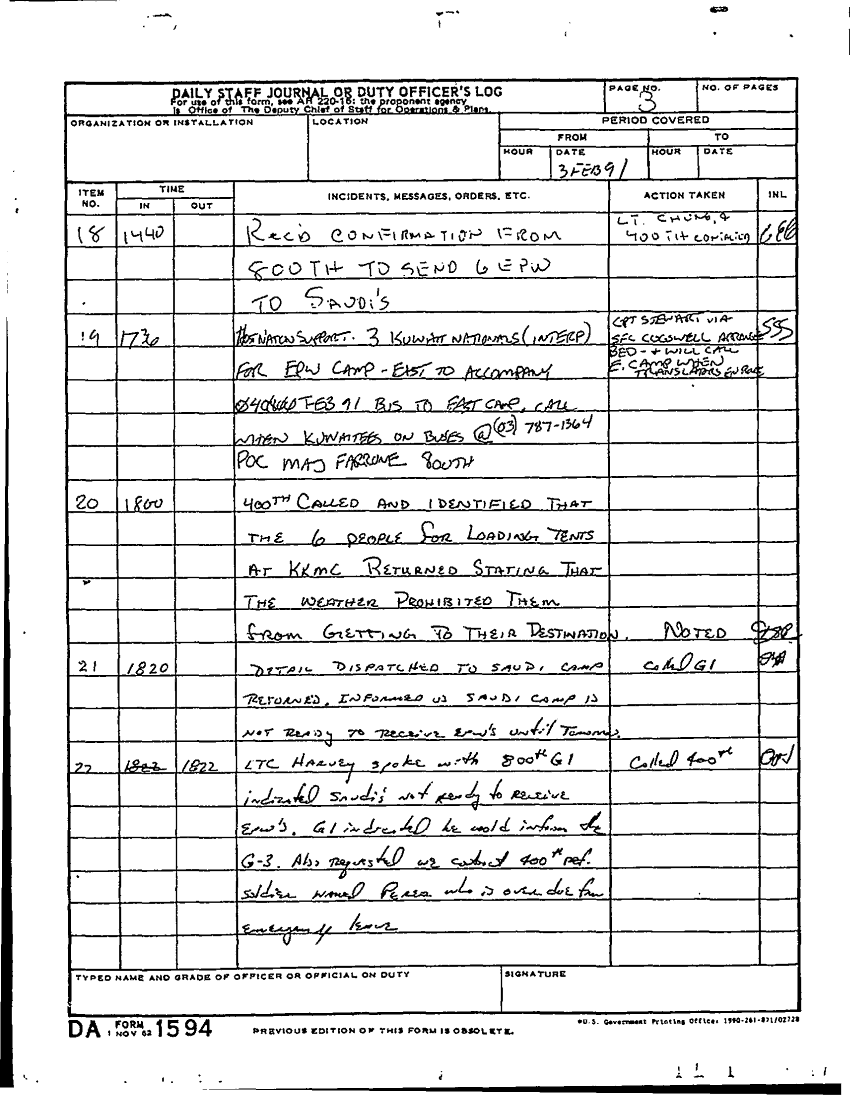 DAILY STAFF JOURNAL OR DUTY OFFICER'S LOG
For use of this form, see AR 220-15; the proponent agency
is Office of The Deputy Chief of Staff for Operations & Plans.
PAGE NO.
3
NO. OF PAGES
ORGANIZATION OR INSTALLATION
LOCATION
PERIOD COVERED
FROM
TO
HOUR
DATE
HOUR
DATE
3 FEB 91
ITEM NO.
TIME
IN
OUT
INCIDENTS, MESSAGES, ORDERS, ETC.
ACTION TAKEN
INL
18 1440 REC'D CONFIRMATION FROM
LT. CHUNG,
400TH
800TH TO SEND 6 EPW
TO SAUDI'S
19 1730 HOST NATION SUPPORT. 3 KUWAIT NATIONALS (INTERP)
CPT STEWART VIA
SFC COGSWELL ARRANGE
BED - + WILL CALL
E. CAMP WHEN
TRANSLATORS EN ROUTE
SS
FOR EPW CAMP - EAST TO ACCOMPANY
FEB 91 BUS TO EAST CAMP, CALL
WHEN KUWAITEES ON BUSES @ (03) 787-1364
POC MAJ FARRONE 800TH
20 1800 400TH CALLED AND IDENTIFIED THAT
THE 6 PEOPLE FOR LOADING TENTS
AT KKMC RETURNED STATING THAT
THE WEATHER PROHIBITED THEM
FROM GETTING TO THEIR DESTINATION. NOTED
21 1820 DETAIL DISPATCHED TO SAUDI CAMP Called G1
RETURNED, INFORMED US SAUDI CAMP IS
NOT READY TO RECEIVE EPW'S until Tomorrow.
22 1822 1822 LTC HARVEY spoke with 800th G1 Called 400th
indicated SAUDI'S not Ready to RECEIVE
EPW'S. G1 indicated he would inform the
G-3. Also requested we contact 400th ref.
soldier named PEREA who is over due from
emergency leave
TYPED NAME AND GRADE OF OFFICER OR OFFICIAL ON DUTY
SIGNATURE
DA FORM 1 NOV 62 1594
PREVIOUS EDITION OF THIS FORM IS OBSOLETE.
*U.S. Government Printing Office: 1990-261-871/02728